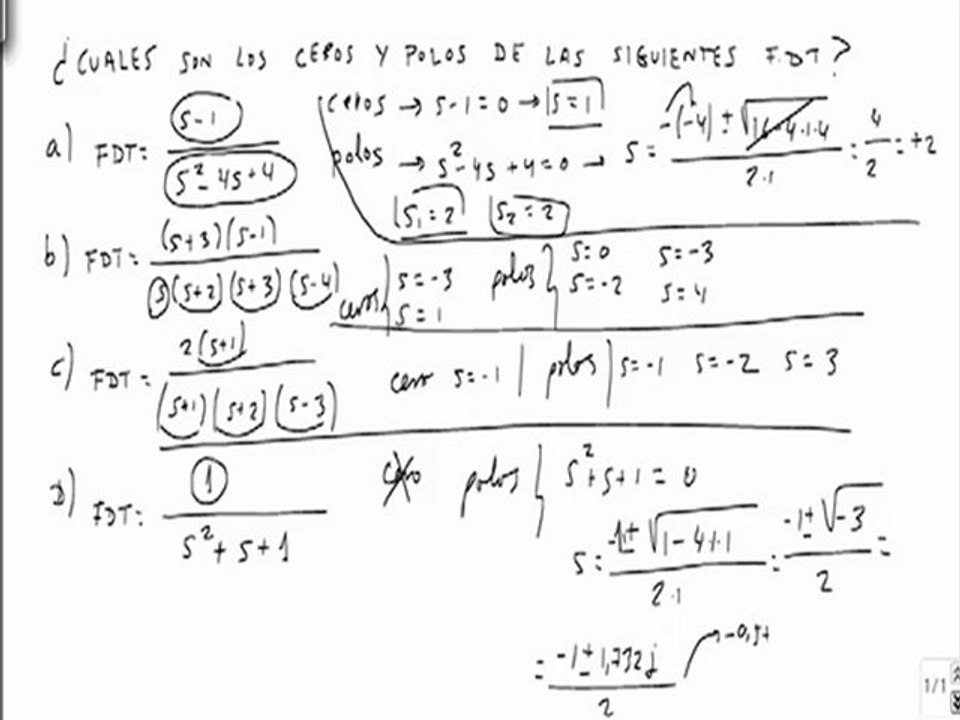 ¿CUALES SON LOS CEROS Y POLOS DE LAS SIGUIENTES F.DT?
a) FDT = (s-1) / (s² - 4s + 4)
ceros → s-1=0 → s=1
polos → s² - 4s + 4 = 0 → s = (-(-4) ± √(16-4·1·4)) / (2·1) = 4/2 = +2
s₁ = 2 s₂ = 2
b) FDT = (s+3)(s-1) / s(s+2)(s+3)(s-4)
ceros s = -3 s = 1
polos s=0 s=-3 s=-2 s=4
c) FDT = 2(s+1) / (s+1)(s+2)(s-3)
cero s=-1 | polos s=-1 s=-2 s=3
D) FDT = 1 / (s² + s + 1)
cero polos s²+s+1 = 0
s = (-1 ± √(1-4·1·1)) / (2·1) = (-1 ± √-3) / 2 =
= (-1 ± 1,732j) / 2 → -0,5+
1/1